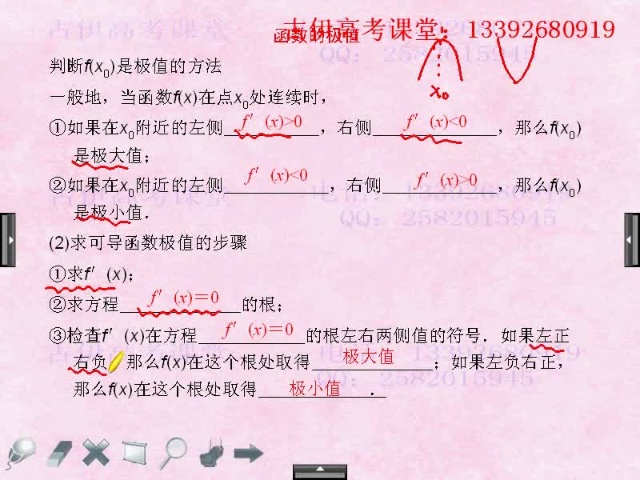 吉伊高考课堂：13392680919
函数的极值
QQ：2582015945
判断f(x₀)是极值的方法
x₀
一般地，当函数f(x)在点x₀处连续时，
①如果在x₀附近的左侧 f′(x)>0 ，右侧 f′(x)<0 ，那么f(x₀)
是极大值；
②如果在x₀附近的左侧 f′(x)<0 ，右侧 f′(x)>0 ，那么f(x₀)
是极小值．
QQ：2582015945
(2)求可导函数极值的步骤
①求f′(x)；
②求方程 f′(x)＝0 的根；
③检查f′(x)在方程 f′(x)＝0 的根左右两侧值的符号．如果左正
右负，那么f(x)在这个根处取得 极大值 ；如果左负右正，
那么f(x)在这个根处取得 极小值 ．